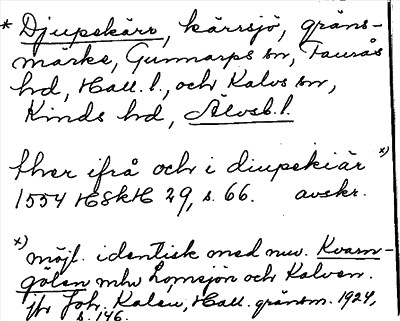 * Djupekärr, kärrsjö, gräns-
märke, Gunnarps sn, Faurås
hd, Hall. l., och Kalvs sn,
Kinds hd, Älvsb. l.
ther ifrå och i diupekiär x)
1554 HSkH 29, s. 66. avskr.
x) möjl. identisk med nuv. Kvarn-
gölen mlw Lomsjön och Kalven.
jfr Joh. Kalén, Hall. gränsm. 1924,
s. 146.